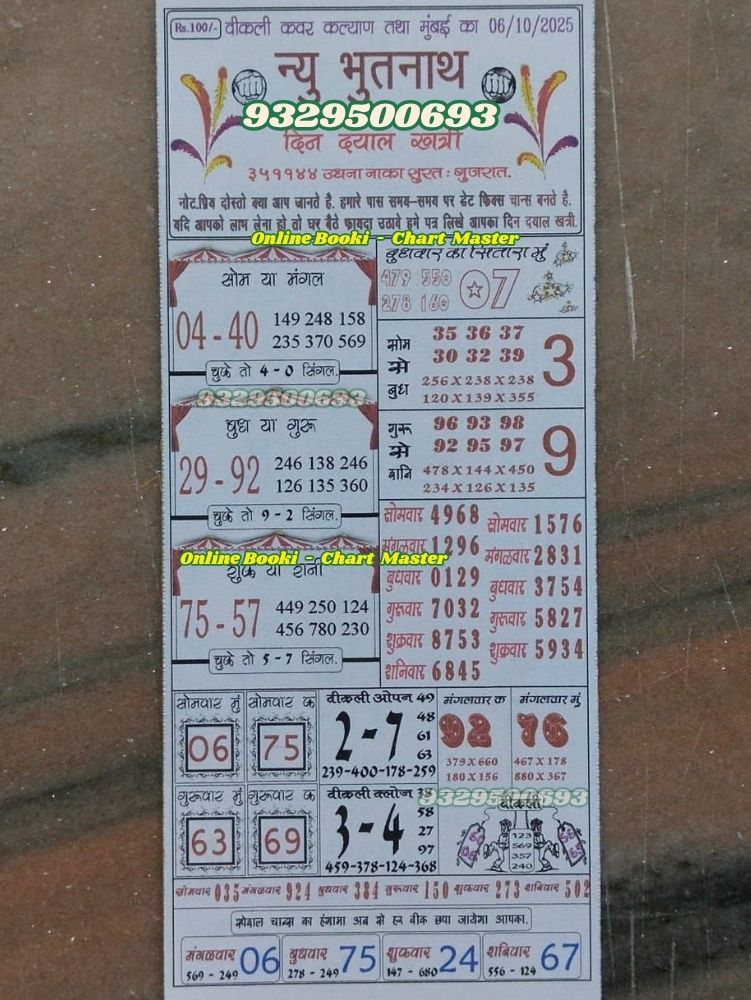 Rs.100/- वीकली कवर कल्याण तथा मुंबई का 06/10/2025
न्यु भुतनाथ
9329500693
दिन दयाल खत्री
३५११४४ उधना नाका सुरत : गुजरात.
नोट.प्रिय दोस्तो क्या आप जानते है. हमारे पास समय-समय पर डेट फिक्स चान्स बनते है.
यदि आपको लाभ लेना हो तो घर बैठे फायदा उठावे हमे पत्र लिखे आपका दिन दयाल खत्री.
Online Booki - Chart Master
सोम या मंगल
04-40
149 248 158
235 370 569
चुके तो 4-0 सिंगल.
9329500693
बुध या गुरू
29-92
246 138 246
126 135 360
चुके तो 9-2 सिंगल.
Online Booki - Chart Master
शुक्र या शनी
75-57
449 250 124
456 780 230
चुके तो 5-7 सिंगल.
बुधवार का सितारा मुं
479 550
278 160
07
सोम से बुध
35 36 37
30 32 39
256 X 238 X 238
120 X 139 X 355
3
गुरू से शनि
96 93 98
92 95 97
478 X 144 X 450
234 X 126 X 135
9
सोमवार 4968
मंगलवार 1296
बुधवार 0129
गुरूवार 7032
शुक्रवार 8753
शनिवार 6845
सोमवार 1576
मंगळवार 2831
बुधवार 3754
गुरूवार 5827
शुक्रवार 5934
सोमवार मुं
06
सोमवार क
75
वीकली ओपन 49
2-7
48
61
63
239-400-178-259
मंगलवार क
92
379 X 660
180 X 156
मंगलवार मुं
76
467 X 178
880 X 367
गुरूवार मुं
63
गुरूवार क
69
वीकली क्लोज 38
3-4
58
27
97
459-378-124-368
9329500693
वीकली
123
569
357
240
सोमवार 035 मंगळवार 924 बुधवार 384 गुरूवार 150 शुक्रवार 273 शनिवार 502
स्पेशल चान्स का हंगामा अब से हर वीक छपा जायेगा आपका.
मंगळवार 06
569 - 249
बुधवार 75
278 - 249
शुक्रवार 24
147 - 680
शनिवार 67
556 - 124